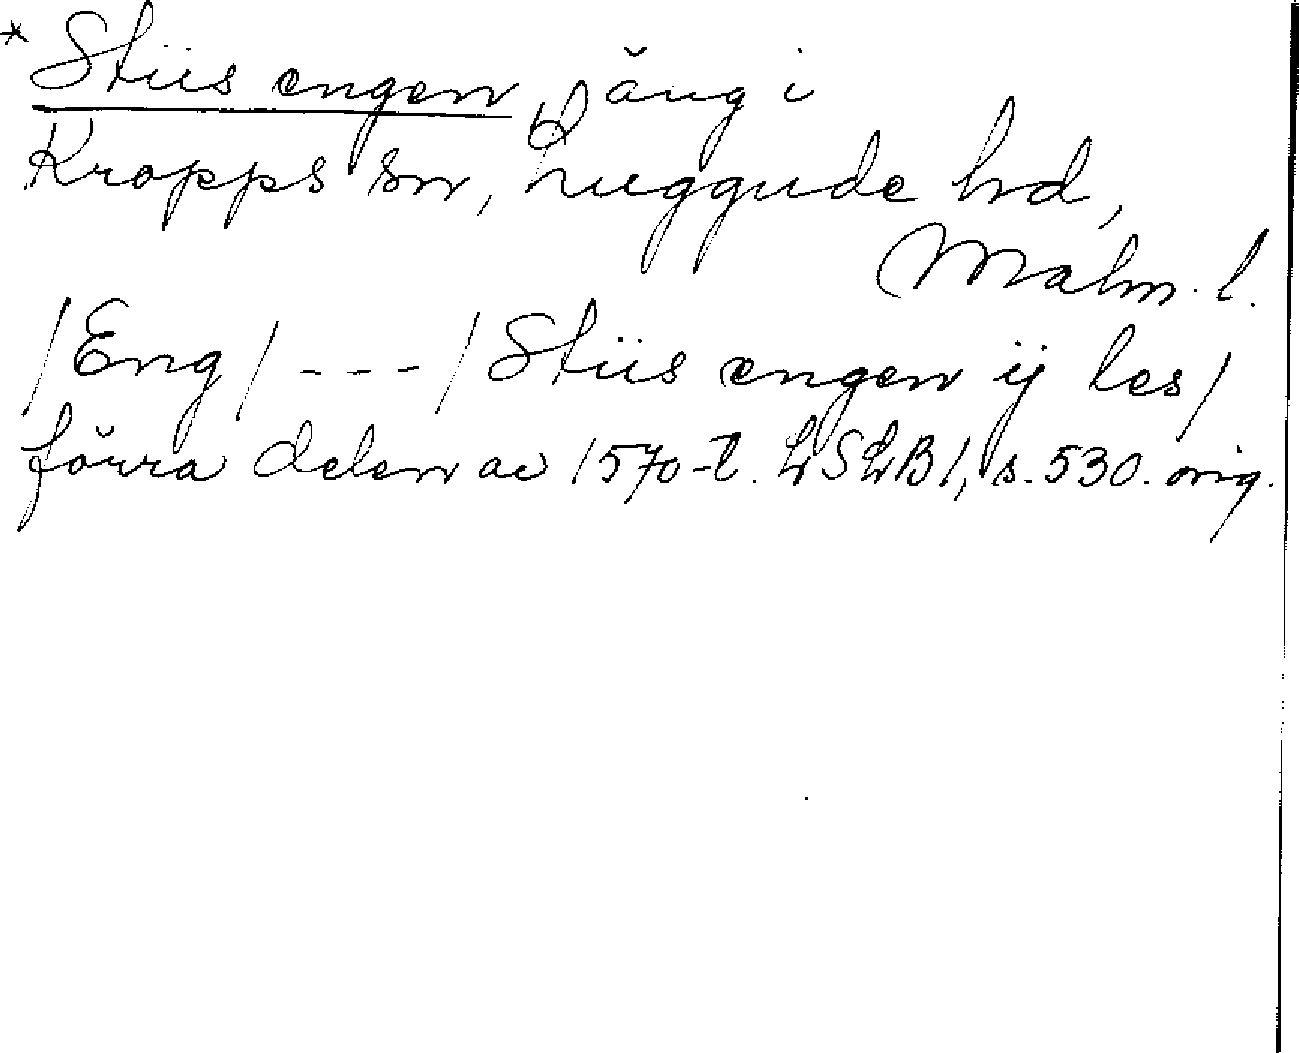 * Stiis engen, äng i
Kropps sn, Luggude hd,
Malm. l.
/Eng/ --- / Stiis engen ij les/
förra delen av 1570-t. LSLB 1, s. 530. orig.